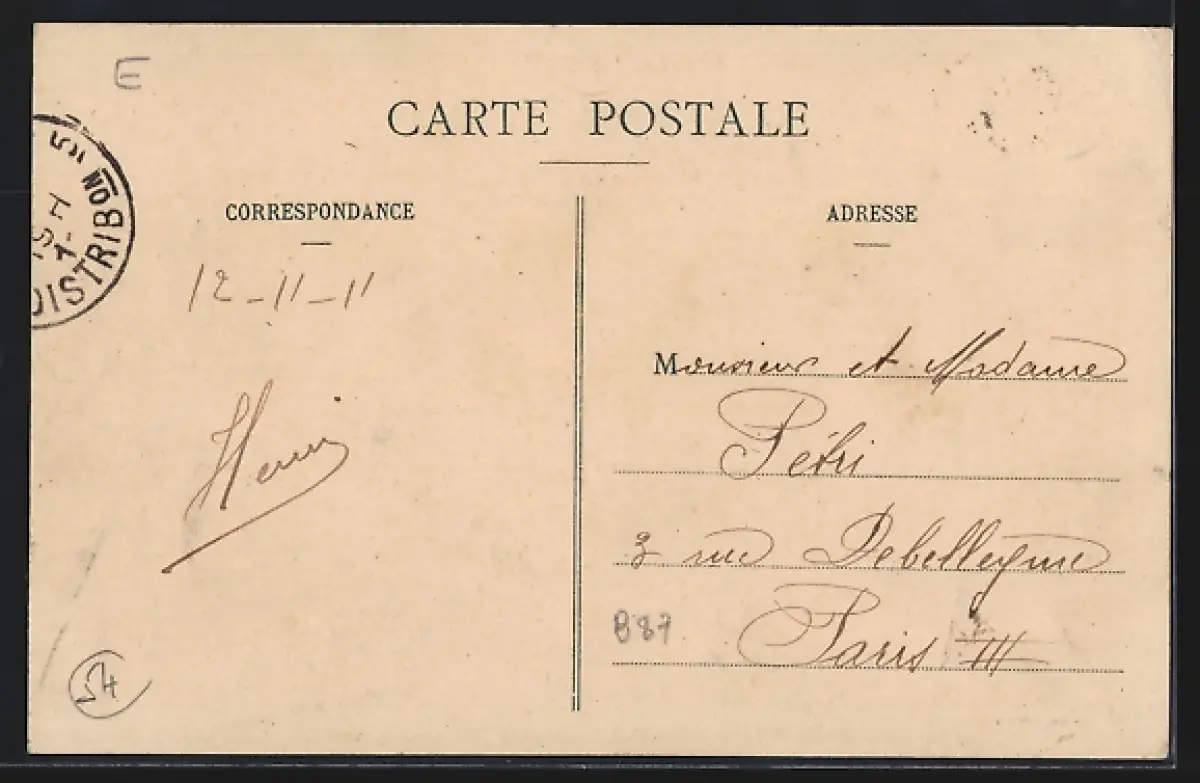 E
CARTE POSTALE
DISTRIBON
CORRESPONDANCE
12-11-11
Henri
54
ADRESSE
Monsieur et Madame
Pétri
3 rue Debelleyme
Paris III
B87